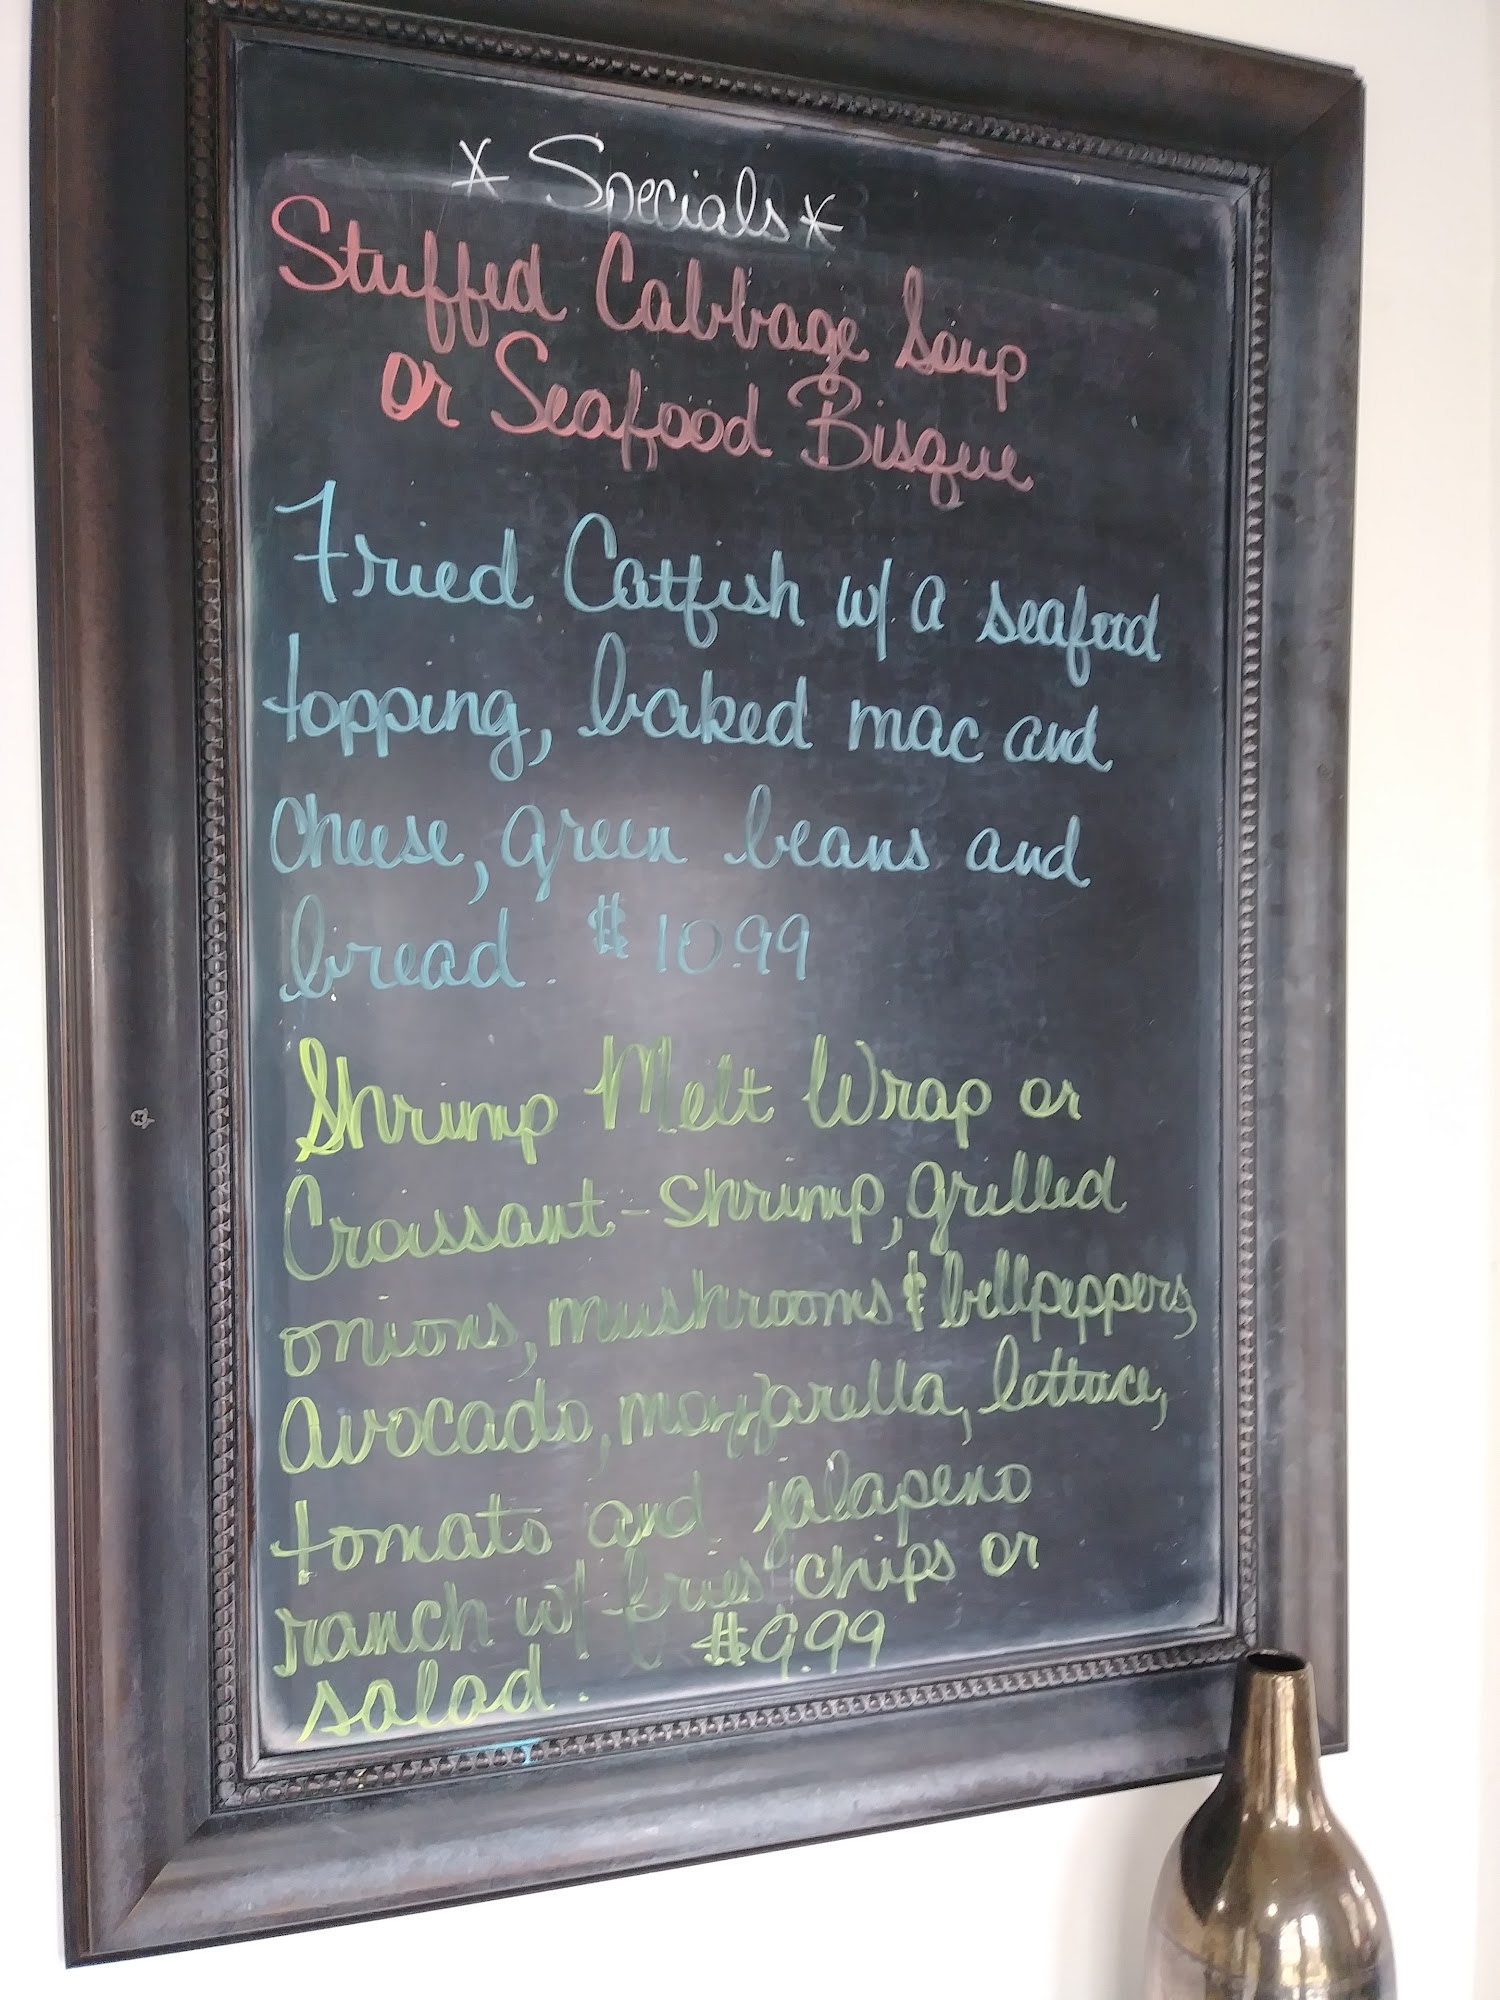 * Specials *
Stuffed Cabbage Soup
or Seafood Bisque
Fried Catfish w/ a seafood
topping, baked mac and
cheese, green beans and
bread. $10.99
Shrimp Melt Wrap or
Croissant - shrimp, grilled
onions, mushrooms & bellpeppers,
avocado, mozzarella, lettuce,
tomato and jalapeno
ranch w/ fries, chips or
salad. $9.99